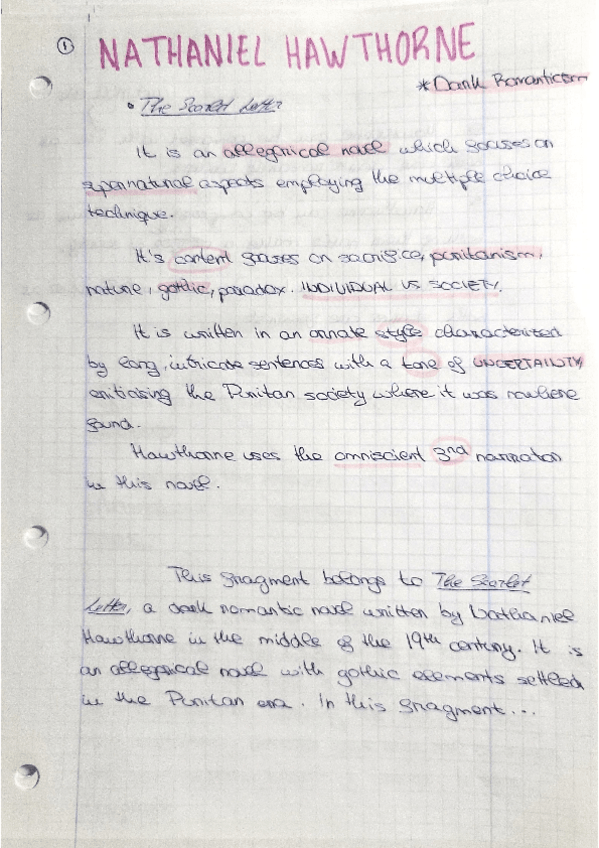 ① NATHANIEL HAWTHORNE
* Dark Romanticism
• The Scarlet Letter
It is an allegorical novel which focuses on
supernatural aspects employing the multiple choice
technique.
It's content focuses on sacrifice, puritanism,
nature, gothic, paradox. INDIVIDUAL VS SOCIETY.
It is written in an ornate style characterized
by long, intricate sentences with a tone of UNCERTAINTY
critizising the Puritan society where it was nowhere
found.
Hawthorne uses the omniscient 3rd narrator
in this novel.
This fragment belongs to The Scarlet
Letter, a dark romantic novel written by Nathaniel
Hawthorne in the middle of the 19th century. It is
an allegorical novel with gothic elements settled
in the Puritan era. In this fragment...